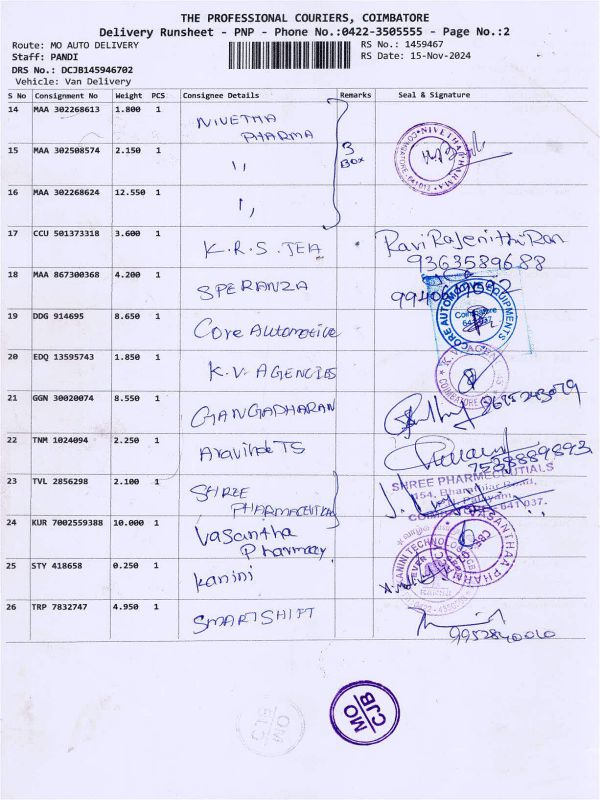 THE PROFESSIONAL COURIERS, COIMBATORE
Delivery Runsheet - PNP - Phone No.:0422-3505555 - Page No.:2
Route: MO AUTO DELIVERY
RS No.: 1459467
Staff: PANDI
RS Date: 15-Nov-2024
DRS No.: DCJB145946702
Vehicle: Van Delivery
S No Consignment No Weight PCS Consignee Details Remarks Seal & Signature
14 MAA 302268613 1.800 1 NIVETHA PHARMA
15 MAA 302508574 2.150 1 ,, 3 BOX
NIVETHA PHARMA
16 MAA 302268624 12.550 1 ,,
17 CCU 501373318 3.600 1 K.R.S. TEA Ravi Rajenithiran
9363589688
18 MAA 867300368 4.200 1 SPERANZA
19 DDG 914695 8.650 1 Core Automotive
CORE AUTOMOTIVE EQUIPMENTS
Coimbatore
20 EDQ 13595743 1.850 1 K.V. AGENCIES
21 GGN 30020074 8.550 1 GANGADHARAN
22 TNM 1024094 2.250 1 Aravinde TS
23 TVL 2856298 2.100 1 SHREE PHARMACEUTICALS
SHREE PHARMACEUTICALS
24 KUR 7002559388 10.000 1 Vasantha Pharmacy
VASANTHAA PHARMACY
25 STY 418658 0.250 1 Kanini
26 TRP 7832747 4.950 1 SMARTSHIFT
9952840010
MO
CJB